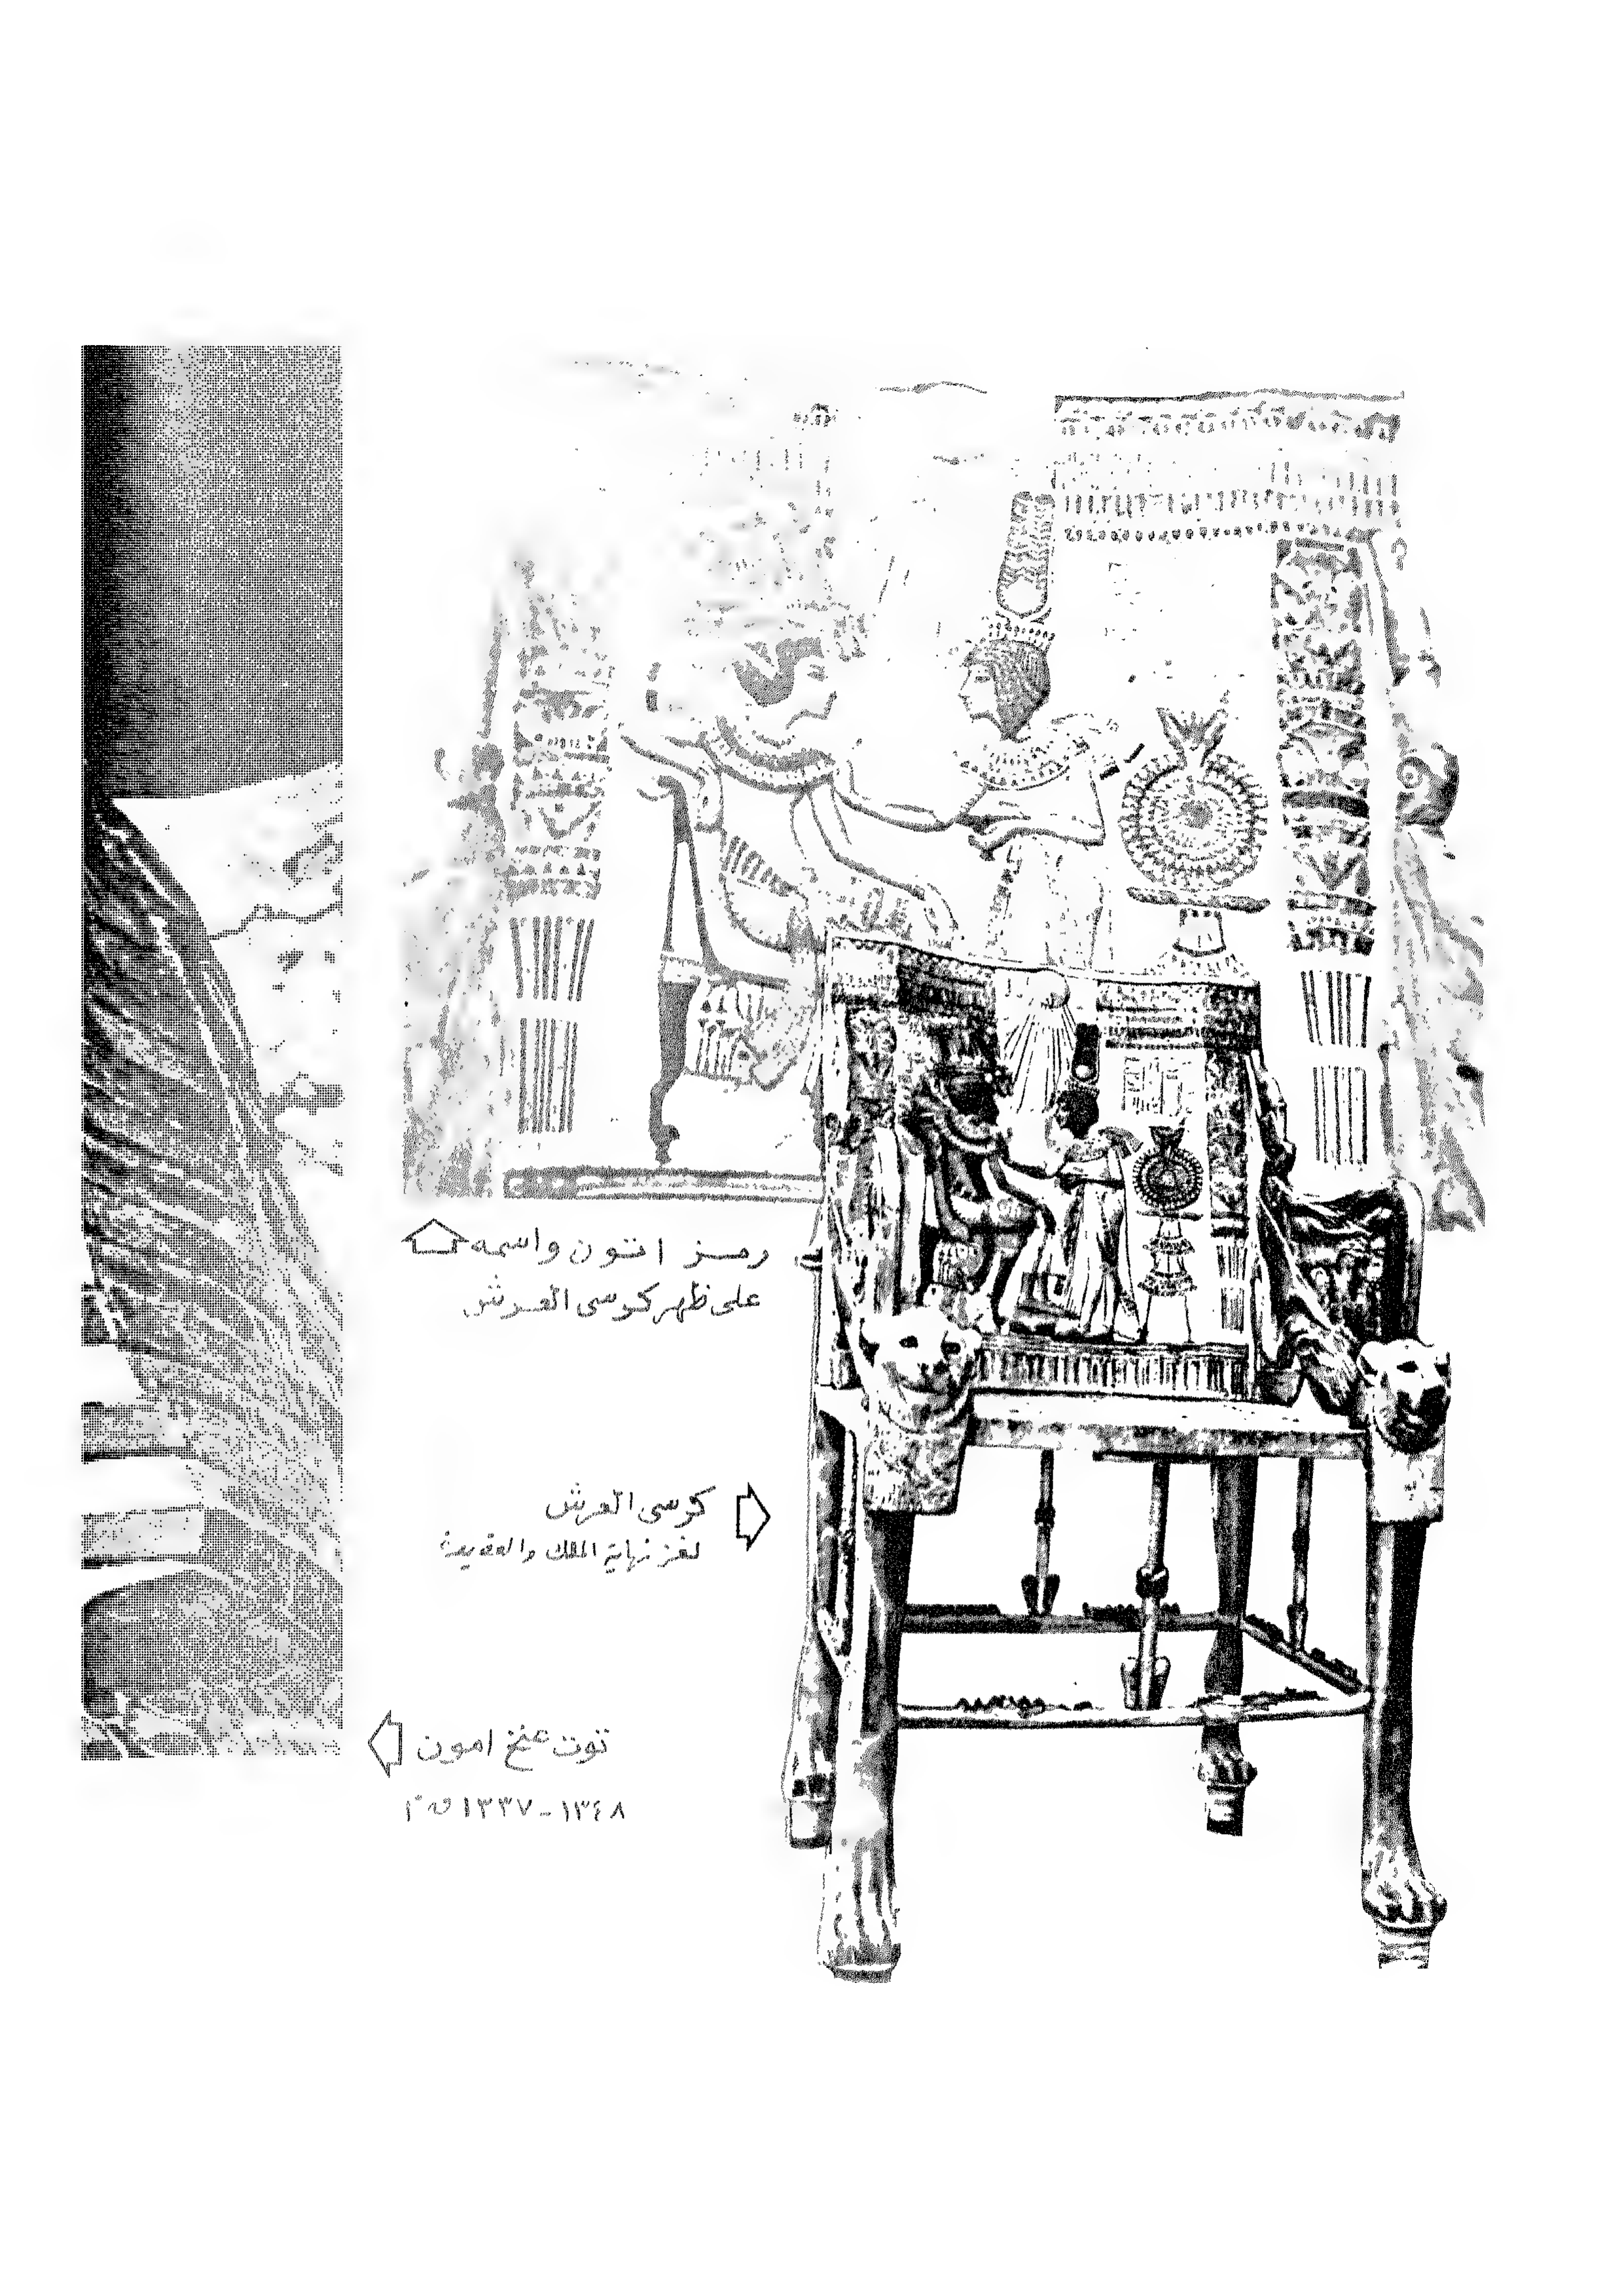 رمز اتون واسمه
على ظهر كرسى العرش
كرسى العرش
لغز نهاية الملك والعقيدة
توت عنخ امون
١٣٤٨ - ١٣٣٧ ق م